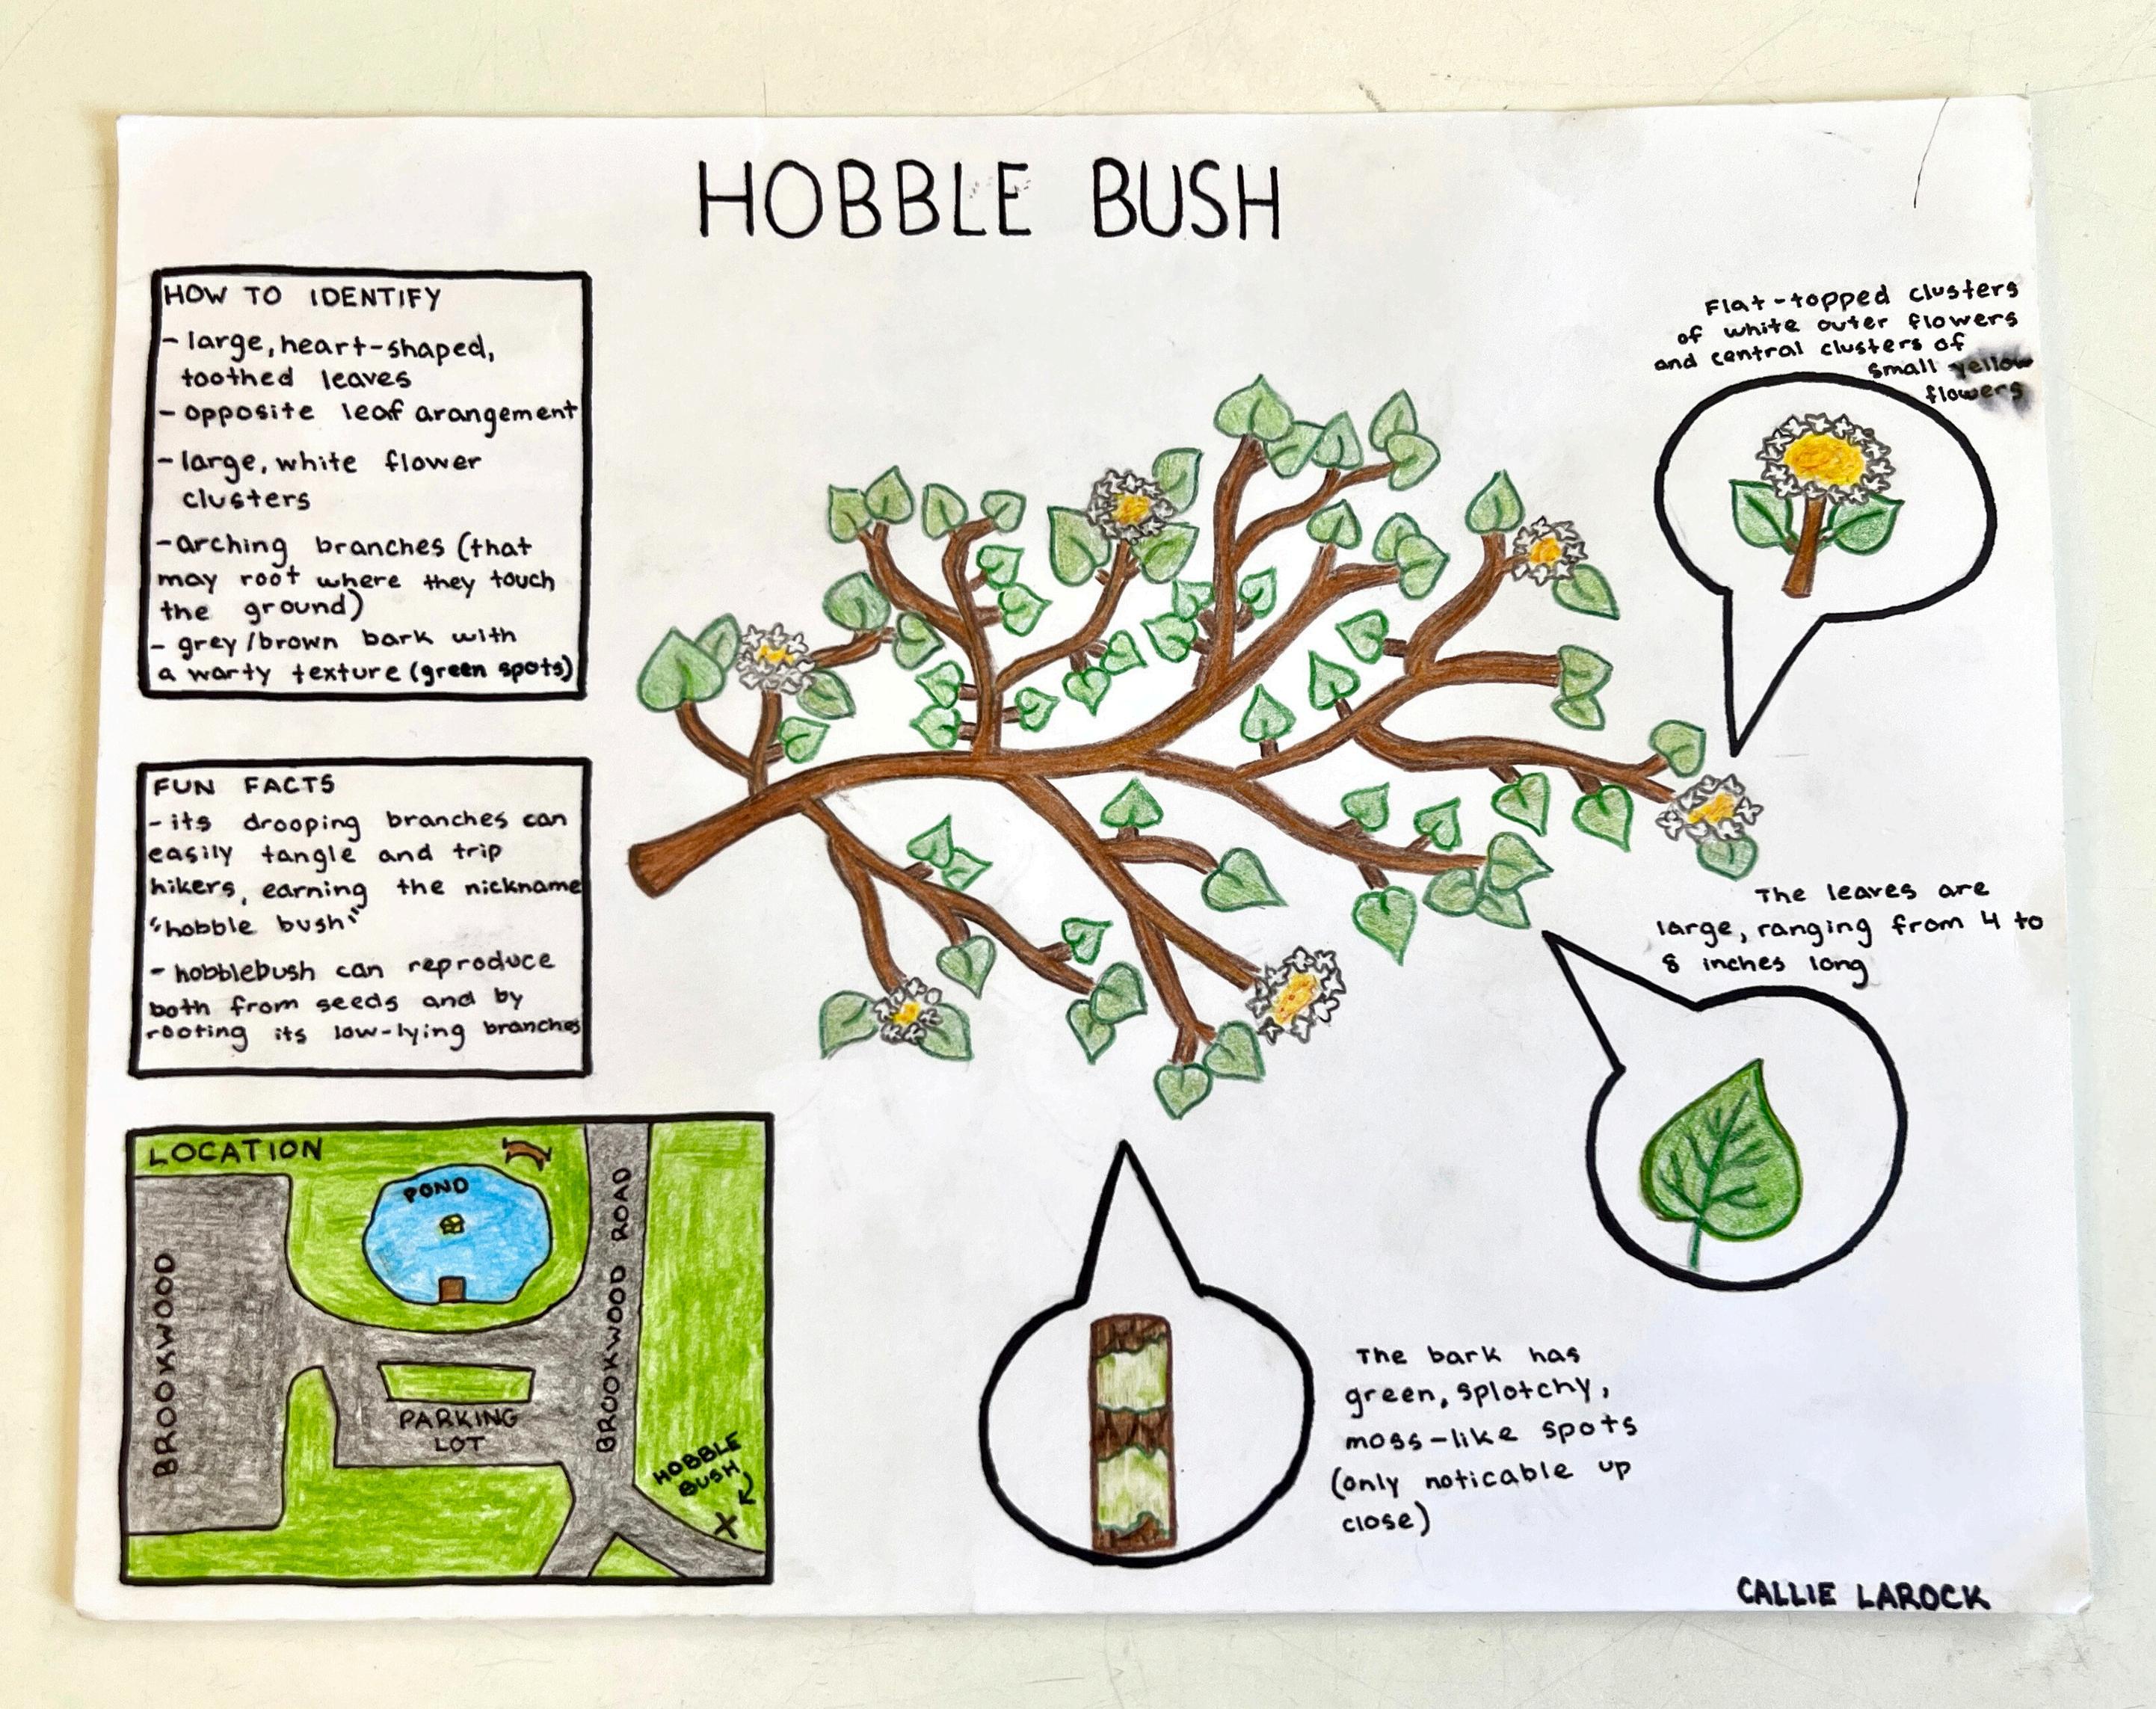 HOBBLE BUSH
HOW TO IDENTIFY
- large, heart-shaped,
toothed leaves
- opposite leaf arangement
- large, white flower
clusters
- arching branches (that
may root where they touch
the ground)
- grey/brown bark with
a warty texture (green spots)
FUN FACTS
- its drooping branches can
easily tangle and trip
hikers, earning the nickname
"hobble bush"
- hobblebush can reproduce
both from seeds and by
rooting its low-lying branches
LOCATION
POND
BROOKWOOD
BROOKWOOD ROAD
PARKING
LOT
HOBBLE
BUSH
X
Flat-topped clusters
of white outer flowers
and central clusters of
small yellow
flowers
The leaves are
large, ranging from 4 to
8 inches long
The bark has
green, splotchy,
moss-like spots
(only noticable up
close)
CALLIE LAROCK